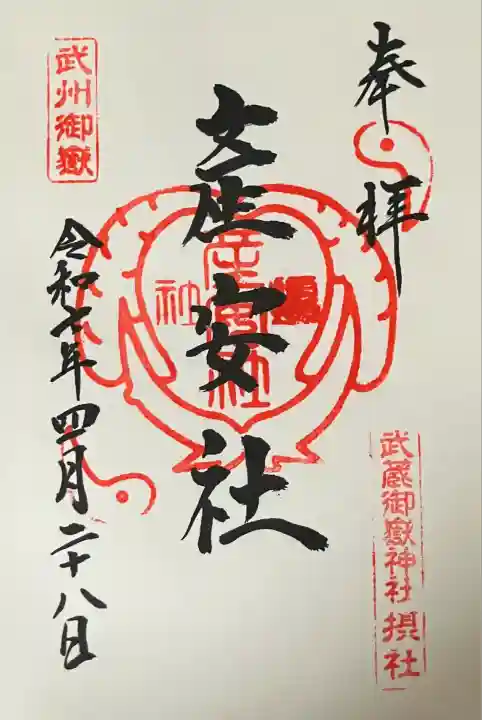 奉拝
武蔵御嶽神社 摂社
産安社
武州御嶽
令和七年四月二十八日